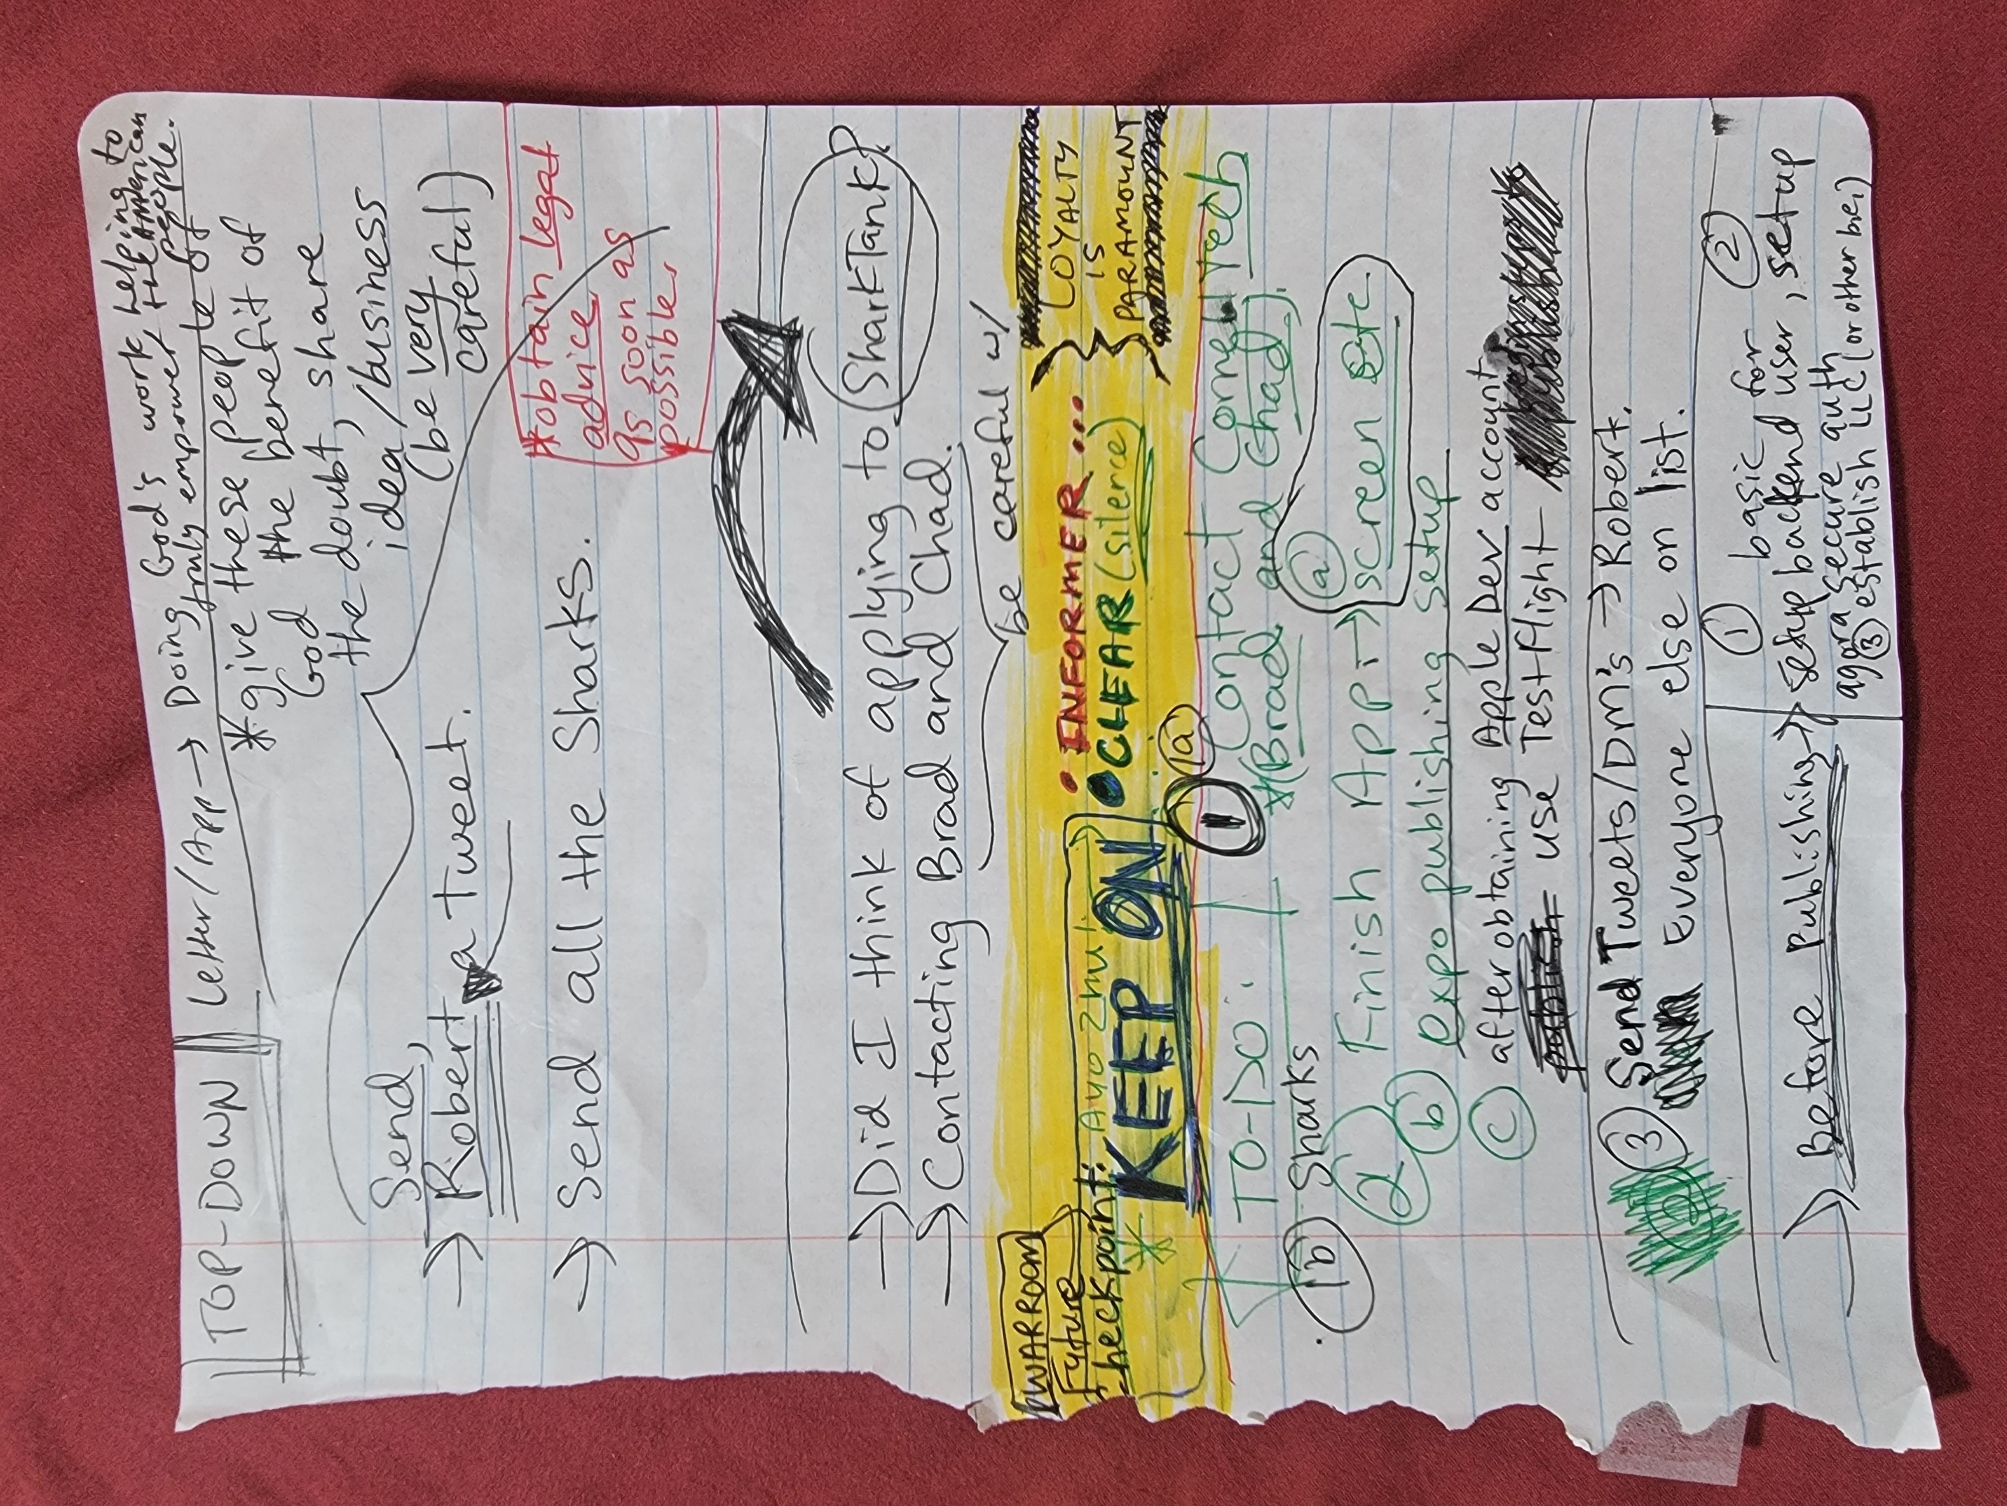 TOP-DOWN
Letter/App → Doing God's work helping to
truly empower the American
people.
*give these people of
God the benefit of
the doubt, share
idea/business
(be very
careful)
Send,
→ Robert a tweet.
→ Send all the Sharks.
*obtain legal
advice
as soon as
possible.
→ Did I think of applying to SharkTank?
→ Contacting Brad and Chad.
be careful w/
WARROOM
Future
Checkpoint:
* KEEP ON
• INFORMER ...
• CLEAR (silence)
LOYALTY
IS
PARAMOUNT
TO-DO:
1 a Contact Cornell Tech
*(Brad and Chad).
1b Sharks
2 Finish App: → a
screen etc.
b expo publishing setup
c after obtaining Apple Dev account,
publish use TestFlight
3 Send Tweets/DM's → Robert.
Everyone else on list.
→ Before Publishing →
1 basic for 2
setup backend user, setup
agora secure auth
3 establish LLC (or other b.e.)